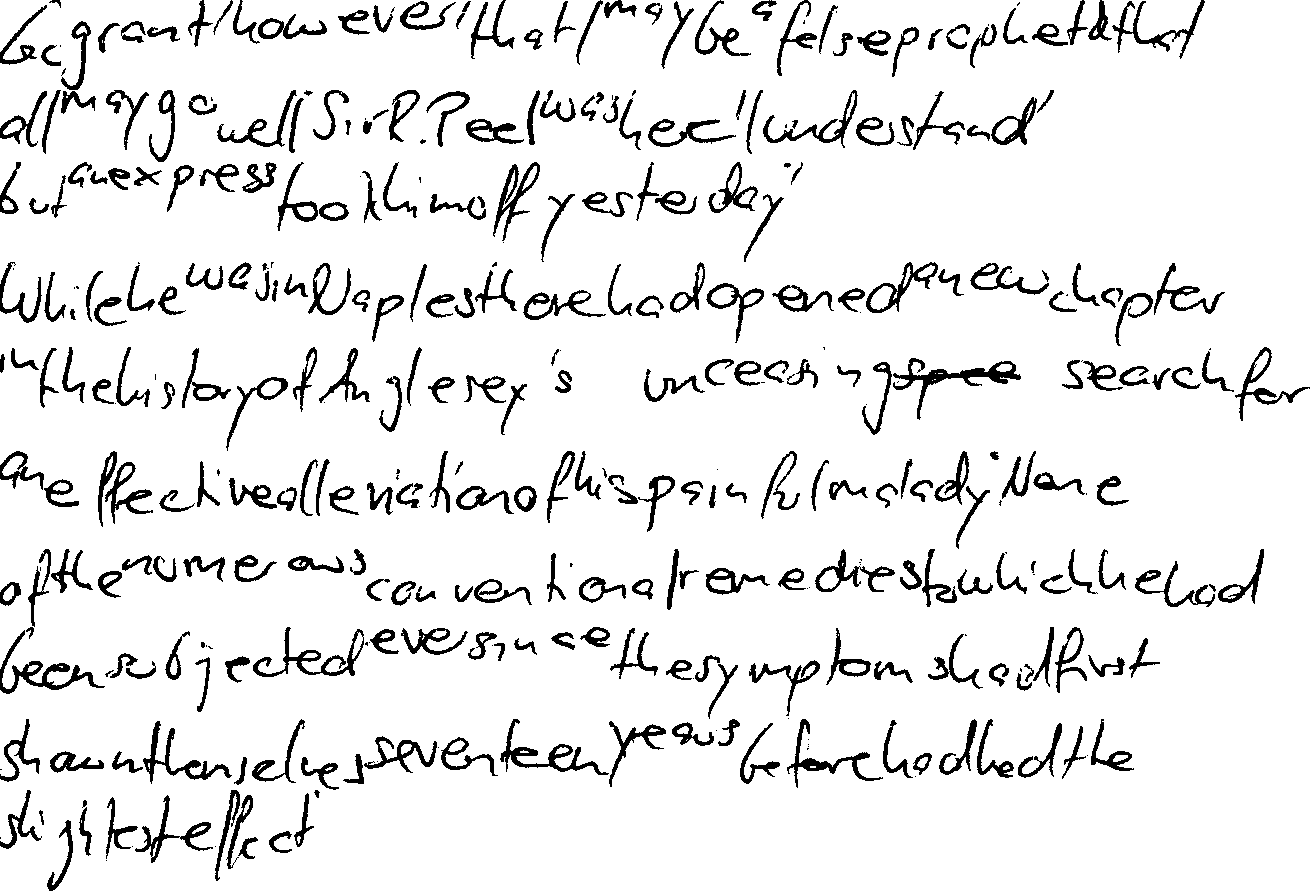 God grant, however, that I may be a false prophet & that
all may go well. Sir R. Peel was here, I understand,
but an express took him off yesterday."
While he was in Naples there had opened a new chapter
in the history of Anglesey's unceasing search for
an effective alleviation of his painful malady. None
of the numerous conventional remedies to which he had
been subjected ever since the symptoms had first
shown themselves seventeen years before had had the
slightest effect.